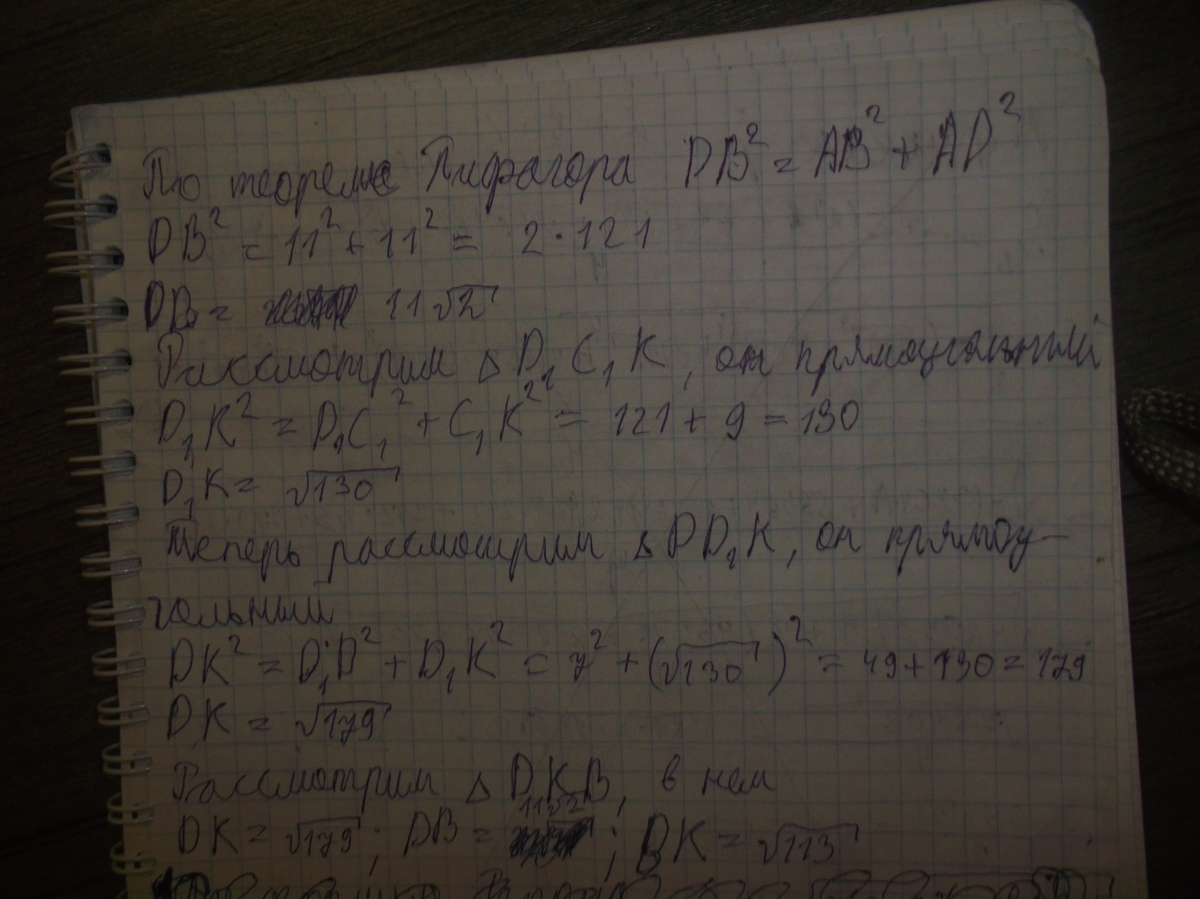 По теореме Пифагора DB² = AB² + AD²
DB² = 11² + 11² = 2·121
DB = 11√2
Рассмотрим △ D₁C₁K, он прямоугольный
D₁K² = D₁C₁² + C₁K² = 121 + 9 = 130
D₁K = √130
Теперь рассмотрим △ DD₁K, он прямоу-
гольный
DK² = D₁D² + D₁K² = 7² + (√130)² = 49 + 130 = 179
DK = √179
Рассмотрим △ DKB, в нем
DK = √179; DB = 11√2; BK = √113